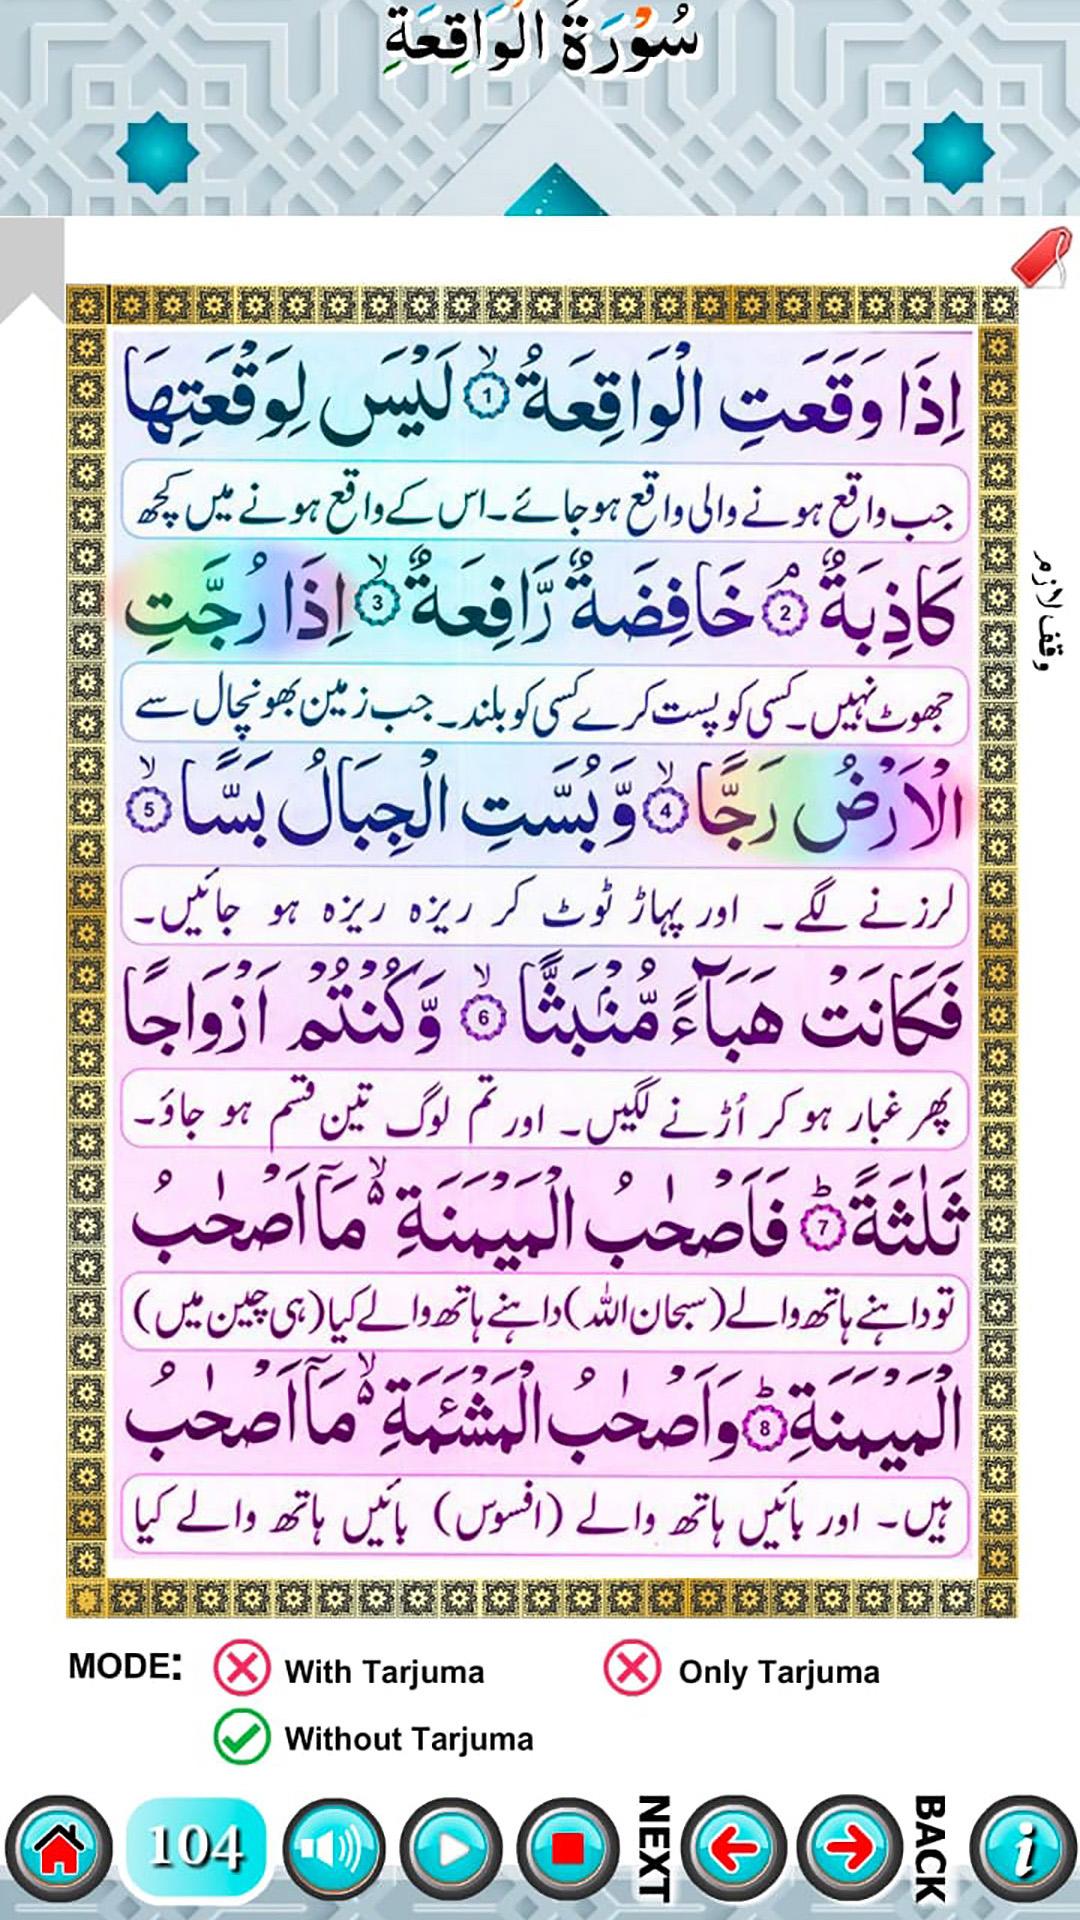 سُوْرَةُ الْوَاقِعَةِ
اِذَا وَقَعَتِ الْوَاقِعَةُ ۙ﴿1﴾ لَیْسَ لِوَقْعَتِهَا
جب واقع ہونے والی واقع ہوجائے۔اس کے واقع ہونے میں کچھ
كَاذِبَةٌ ۘ﴿2﴾ خَافِضَةٌ رَّافِعَةٌ ۙ﴿3﴾ اِذَا رُجَّتِ
وقف لازم
جھوٹ نہیں۔کسی کو پست کرے کسی کو بلند۔ جب زمین بھونچال سے
الْاَرْضُ رَجًّا ۙ﴿4﴾ وَّ بُسَّتِ الْجِبَالُ بَسًّا ۙ﴿5﴾
لرزنے لگے۔ اور پہاڑ ٹوٹ کر ریزہ ریزہ ہو جائیں۔
فَكَانَتْ هَبَآءً مُّنْۢبَثًّا ۙ﴿6﴾ وَّ كُنْتُمْ اَزْوَاجًا
پھر غبار ہو کر اُڑنے لگیں۔ اور تم لوگ تین قسم ہو جاؤ۔
ثَلٰثَةً ؕ﴿7﴾ فَاَصْحٰبُ الْمَیْمَنَةِ ۙ۬ مَاۤ اَصْحٰبُ
تو داہنے ہاتھ والے (سبحان اللہ) داہنے ہاتھ والے کیا (ہی چین میں)
الْمَیْمَنَةِ ؕ﴿8﴾ وَ اَصْحٰبُ الْمَشْـَٔمَةِ ۙ۬ مَاۤ اَصْحٰبُ
ہیں۔ اور بائیں ہاتھ والے (افسوس) بائیں ہاتھ والے کیا
MODE: With Tarjuma Only Tarjuma
Without Tarjuma
104 NEXT BACK i